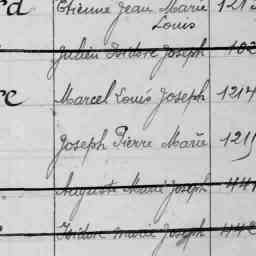 rd Etienne Jean Marie 1213
Louis
Julien Isidore Joseph 102
re Marcel Louis Joseph 1214
Joseph Pierre Marie 1215
Auguste Marie Joseph 441
Isidore Marie Joseph 442